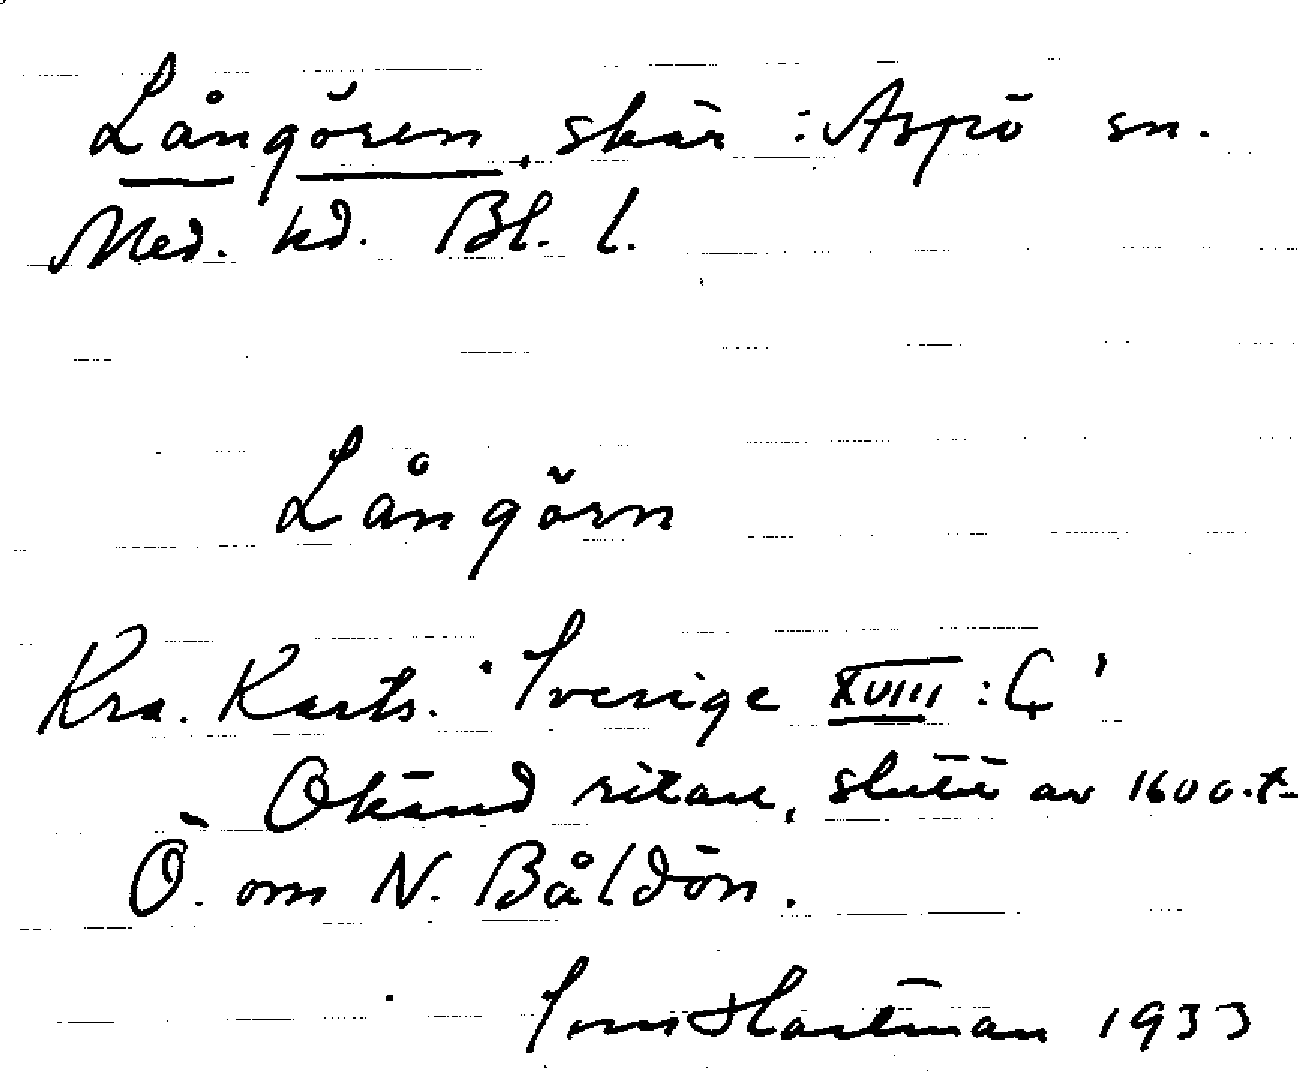 Långören, skär : Aspö sn.
Med. hd. Bl. l.
Långörn
Kra. Karts. "Sverige XVIII : C"
Okänd ritare, slutet av 1600-t.
Ö. om N. Båldön.
Hartman 1933